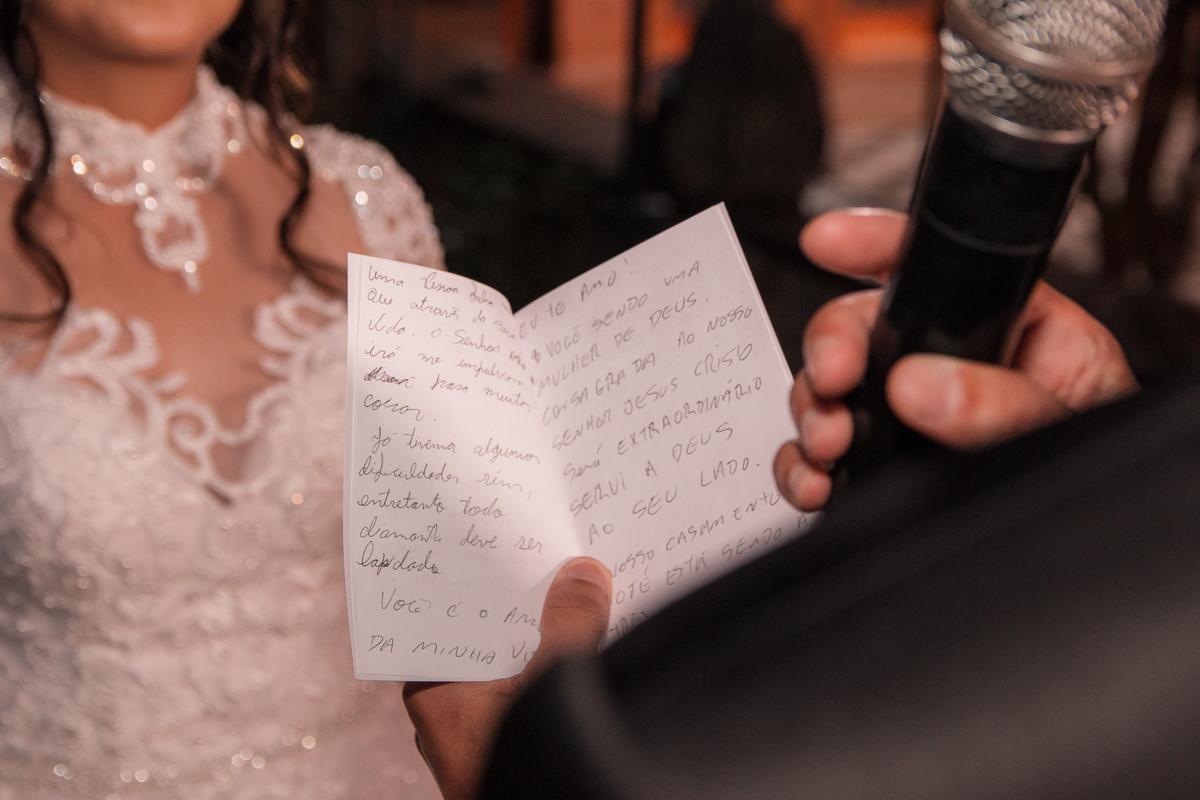 uma Pessoa
que através da sua
vida, o Senhor
irá me impulsionar
para muitas
coisas.
Já tivemos algumas
dificuldades sim,
entretanto todo
diamante deve ser
lapidado
Você é o
DA MINHA
EU TE AMO!
VOCÊ SENDO UMA
MULHER DE DEUS.
CONSAGRADA AO NOSSO
SENHOR JESUS CRISTO.
Será EXTRAORDINÁRIO
SERVI A DEUS
AO SEU LADO.
NOSSO CASAMENTO
ESTÁ SENDO A